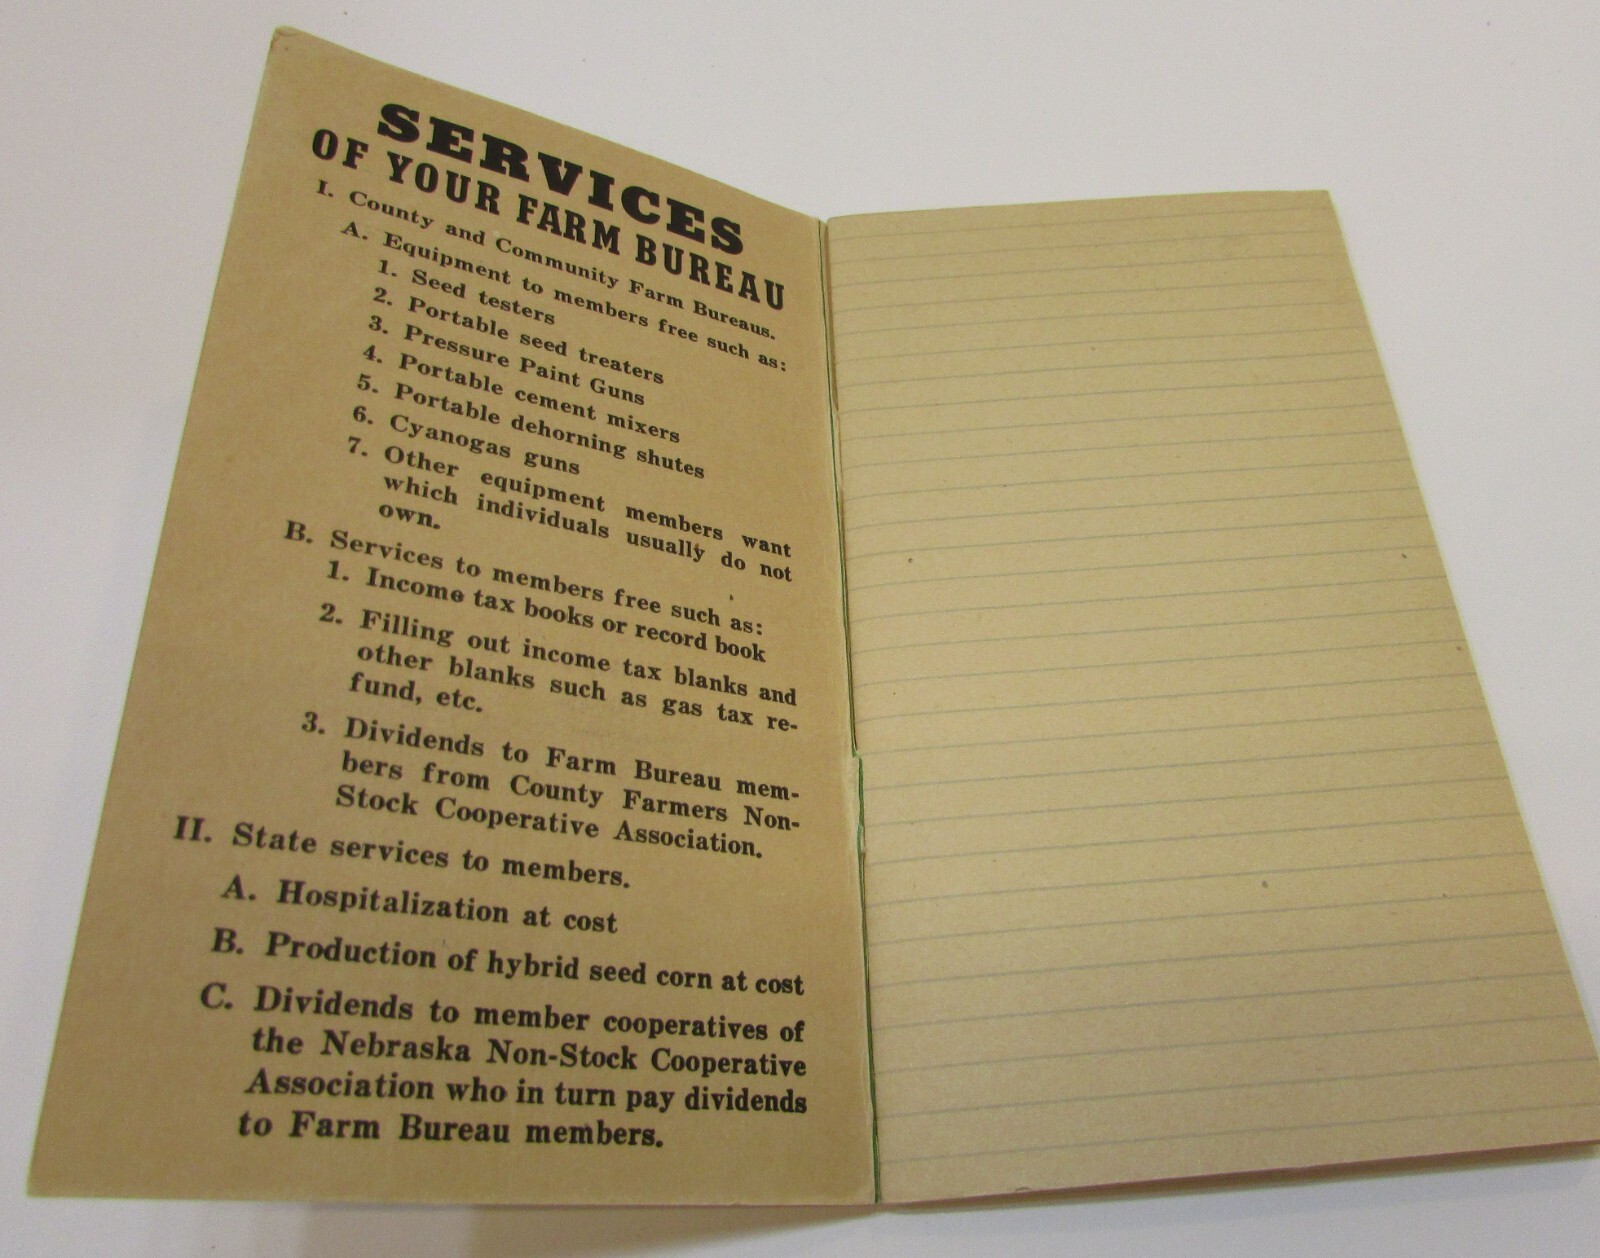 SERVICES
OF YOUR FARM BUREAU
I. County and Community Farm Bureaus.
A. Equipment to members free such as:
1. Seed testers
2. Portable seed treaters
3. Pressure Paint Guns
4. Portable cement mixers
5. Portable dehorning shutes
6. Cyanogas guns
7. Other equipment members want
which individuals usually do not
own.
B. Services to members free such as:
1. Income tax books or record book
2. Filling out income tax blanks and
other blanks such as gas tax re-
fund, etc.
3. Dividends to Farm Bureau mem-
bers from County Farmers Non-
Stock Cooperative Association.
II. State services to members.
A. Hospitalization at cost
B. Production of hybrid seed corn at cost
C. Dividends to member cooperatives of
the Nebraska Non-Stock Cooperative
Association who in turn pay dividends
to Farm Bureau members.